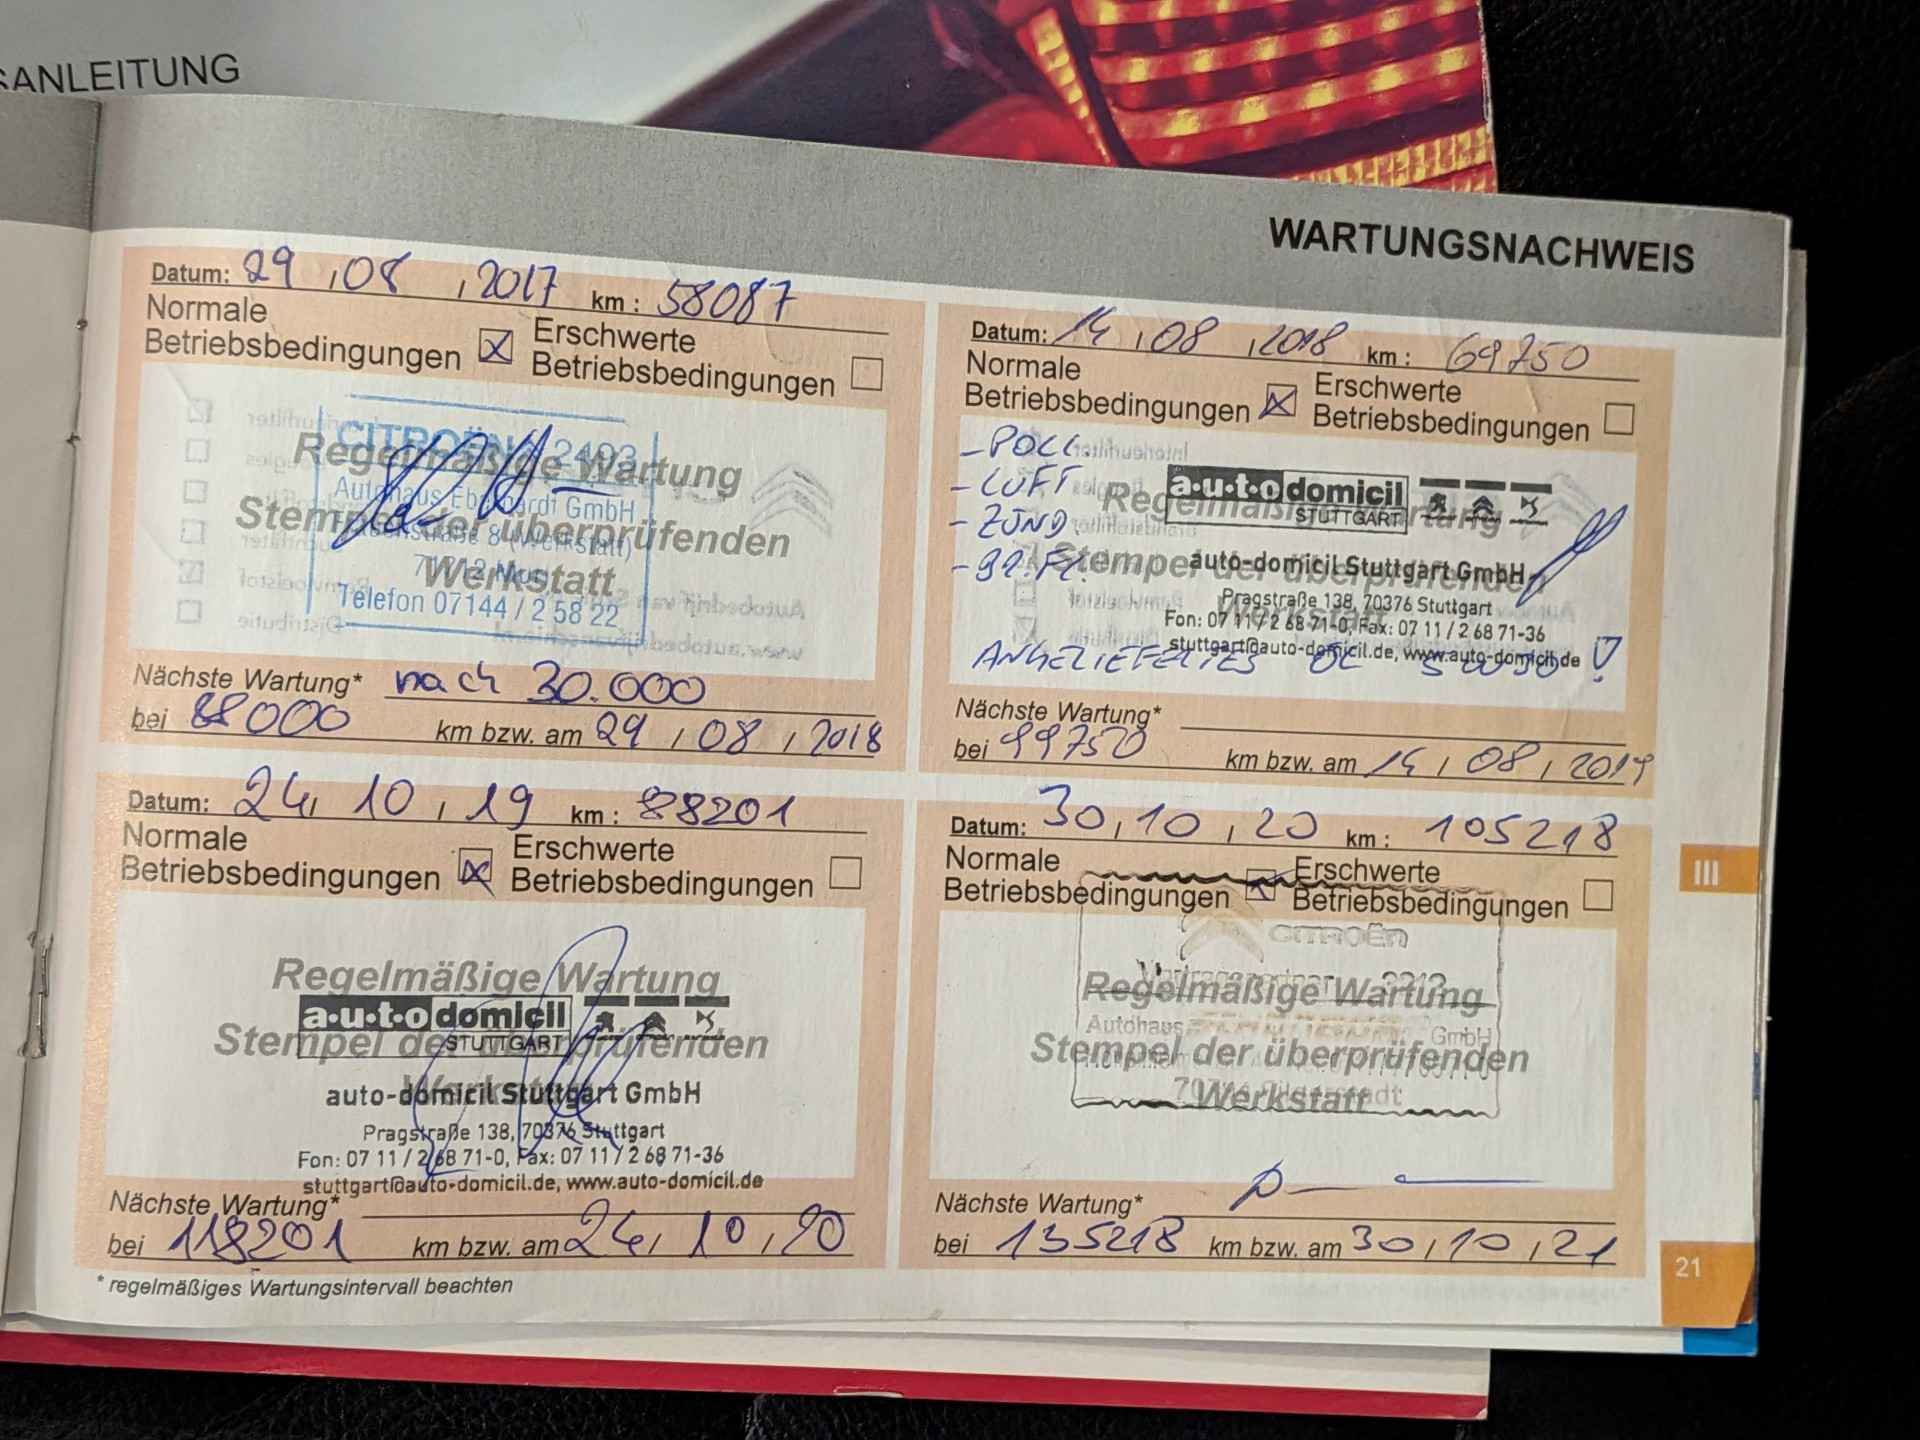 SANLEITUNG
WARTUNGSNACHWEIS
Datum: 29 , 08 , 2017 km : 58087
Normale
Betriebsbedingungen X Erschwerte
Betriebsbedingungen
CITROËN 2493
Regelmäßige Wartung
Autohaus Eberhardt GmbH
Stempel der überprüfenden
8 (Werkstatt)
Werkstatt
Telefon 07144 / 2 58 22
Nächste Wartung* nach 30.000
bei 88000 km bzw. am 29 , 08 , 2018
Datum: 14 , 08 , 2018 km : 69750
Normale
Betriebsbedingungen X Erschwerte
Betriebsbedingungen
- POLL
- LUFT
- ZÜND
a·u·t·o domicil
STUTTGART
Regelmäßige Wartung
Stempel der überprüfenden
auto-domicil Stuttgart GmbH
Werkstatt
Pragstraße 138, 70376 Stuttgart
Fon: 07 11 / 2 68 71-0, Fax: 07 11 / 2 68 71-36
stuttgart@auto-domicil.de, www.auto-domicil.de
ANGELIEFERTES ÖL 5W30 !
Nächste Wartung*
bei 99750 km bzw. am 14 , 08 , 2019
Datum: 24, 10 , 19 km : 88201
Normale
Betriebsbedingungen X Erschwerte
Betriebsbedingungen
Regelmäßige Wartung
a·u·t·o domicil
STUTTGART
Stempel der überprüfenden
Werkstatt
auto-domicil Stuttgart GmbH
Pragstraße 138, 70376 Stuttgart
Fon: 07 11 / 2 68 71-0, Fax: 07 11 / 2 68 71-36
stuttgart@auto-domicil.de, www.auto-domicil.de
Nächste Wartung*
bei 118201 km bzw. am 24, 10 , 20
* regelmäßiges Wartungsintervall beachten
Datum: 30, 10 , 20 km : 105218
Normale
Betriebsbedingungen X Erschwerte
Betriebsbedingungen
CITROËN
Regelmäßige Wartung
Autohaus GmbH
Stempel der überprüfenden
Werkstatt
Nächste Wartung*
bei 135218 km bzw. am 30, 10 , 21
III
21